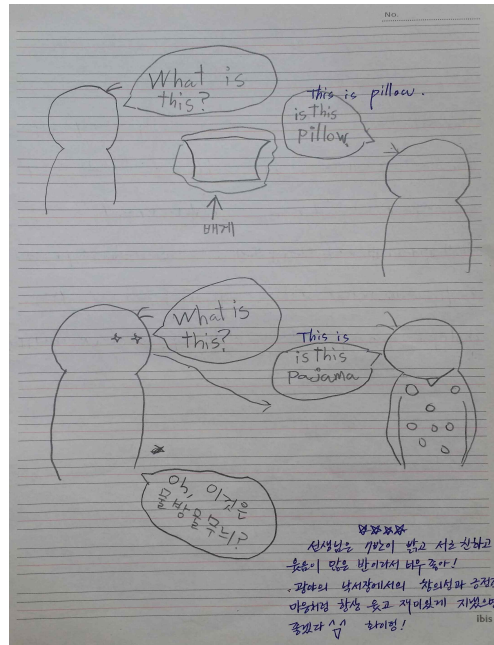 No.
What is
this?
This is pillow.
is this
pillow.
배게
What is
this?
This is
is this
Pajama
어, 이것은
물방울 무늬?
☆☆☆☆
선생님은 7반이 밝고 서로 친하고
웃음이 많은 반이라서 너무 좋아!
광야의 낙서장에서의 창의성과 긍정적
마음처럼 항상 웃고 재미있게 지냈으면
좋겠다 ^^ 화이팅!
ibis